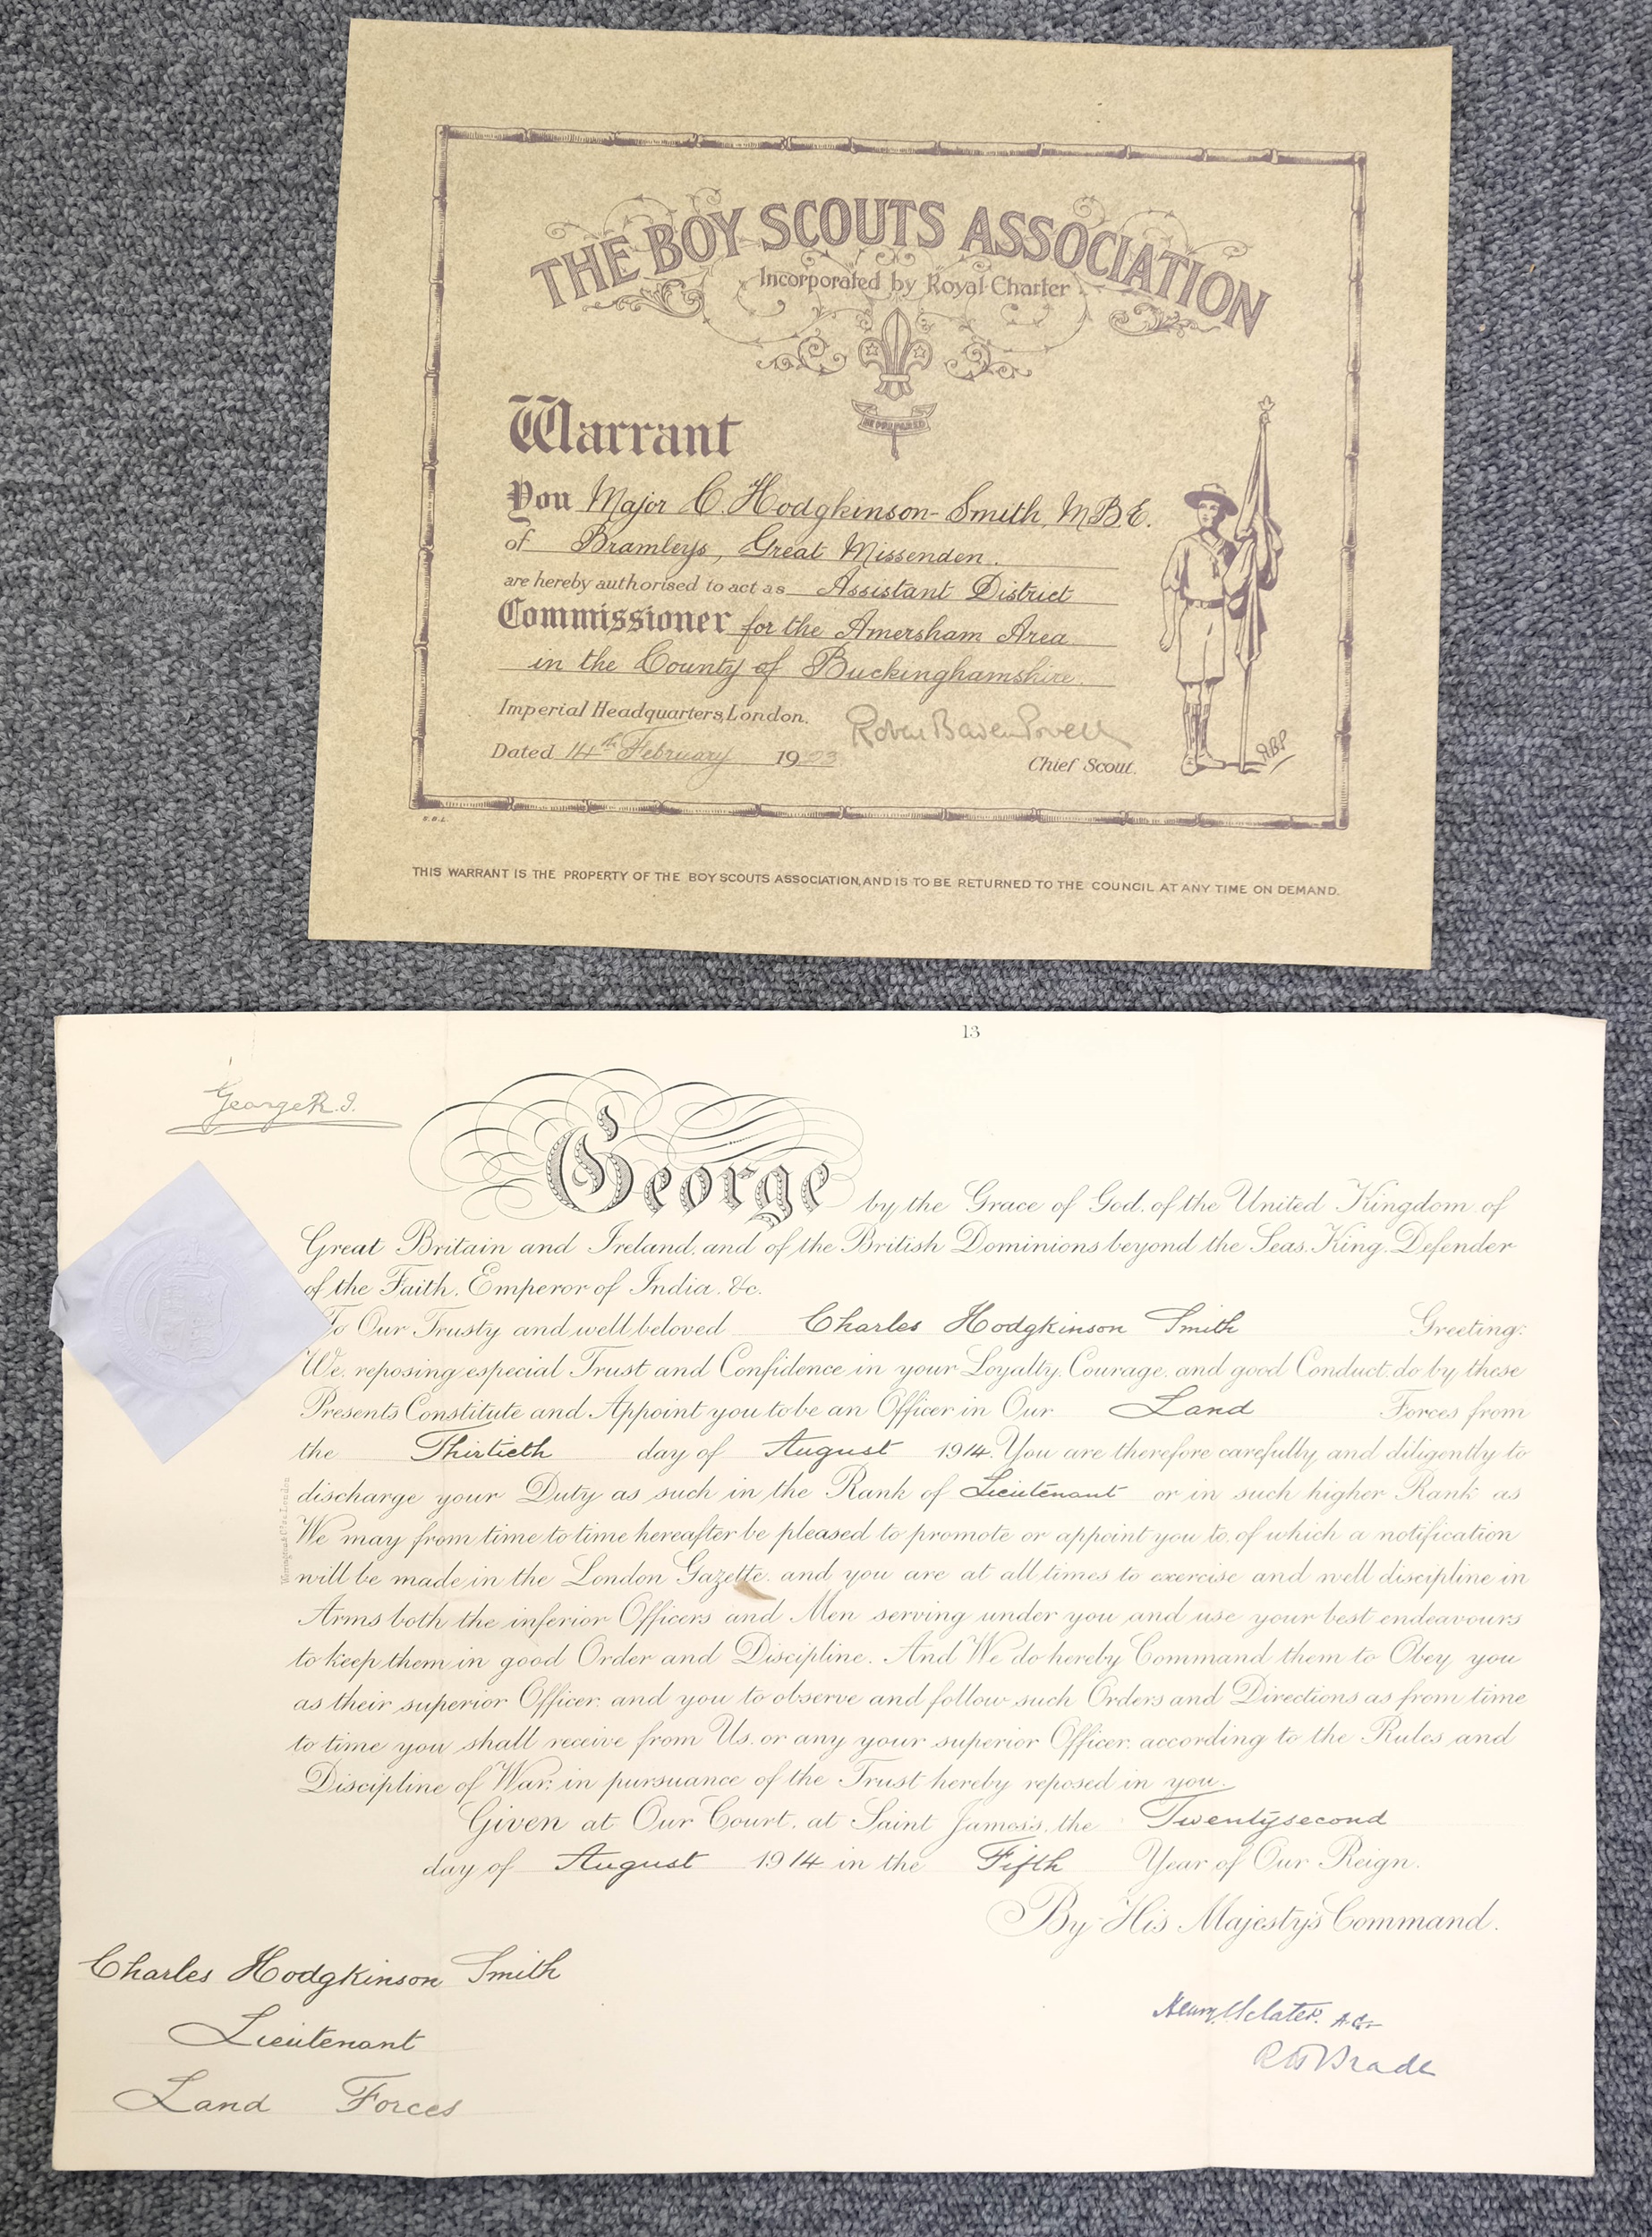 THE BOY SCOUTS ASSOCIATION
Incorporated by Royal Charter
BE PREPARED
Warrant
You Major C. Hodgkinson-Smith, M.B.E.
of Bramleys, Great Missenden.
are hereby authorised to act as Assistant District
Commissioner for the Amersham Area
in the County of Buckinghamshire.
Imperial Headquarters, London.
Robert Baden Powell
Dated 14th February 19
Chief Scout.
THIS WARRANT IS THE PROPERTY OF THE BOY SCOUTS ASSOCIATION, AND IS TO BE RETURNED TO THE COUNCIL AT ANY TIME ON DEMAND.
13
George R.I.
George by the Grace of God, of the United Kingdom of
Great Britain and Ireland, and of the British Dominions beyond the Seas, King, Defender
of the Faith, Emperor of India, &c.
To Our Trusty and well beloved Charles Hodgkinson Smith Greeting:
We, reposing especial Trust and Confidence in your Loyalty, Courage, and good Conduct, do by these
Presents Constitute and Appoint you to be an Officer in Our Land Forces from
the Thirtieth day of August 1914. You are therefore carefully and diligently to
discharge your Duty as such in the Rank of Lieutenant or in such higher Rank as
We may from time to time hereafter be pleased to promote or appoint you to, of which a notification
will be made in the London Gazette, and you are at all times to exercise and well discipline in
Arms both the inferior Officers and Men serving under you and use your best endeavours
to keep them in good Order and Discipline. And We do hereby Command them to Obey you
as their superior Officer, and you to observe and follow such Orders and Directions as from time
to time you shall receive from Us, or any your superior Officer, according to the Rules and
Discipline of War, in pursuance of the Trust hereby reposed in you.
Given at Our Court, at Saint James's, the Twentysecond
day of August 1914 in the Fifth Year of Our Reign.
By His Majesty's Command.
Charles Hodgkinson Smith
Lieutenant
Land Forces
Henry Sclater. A.G.
R H Brade